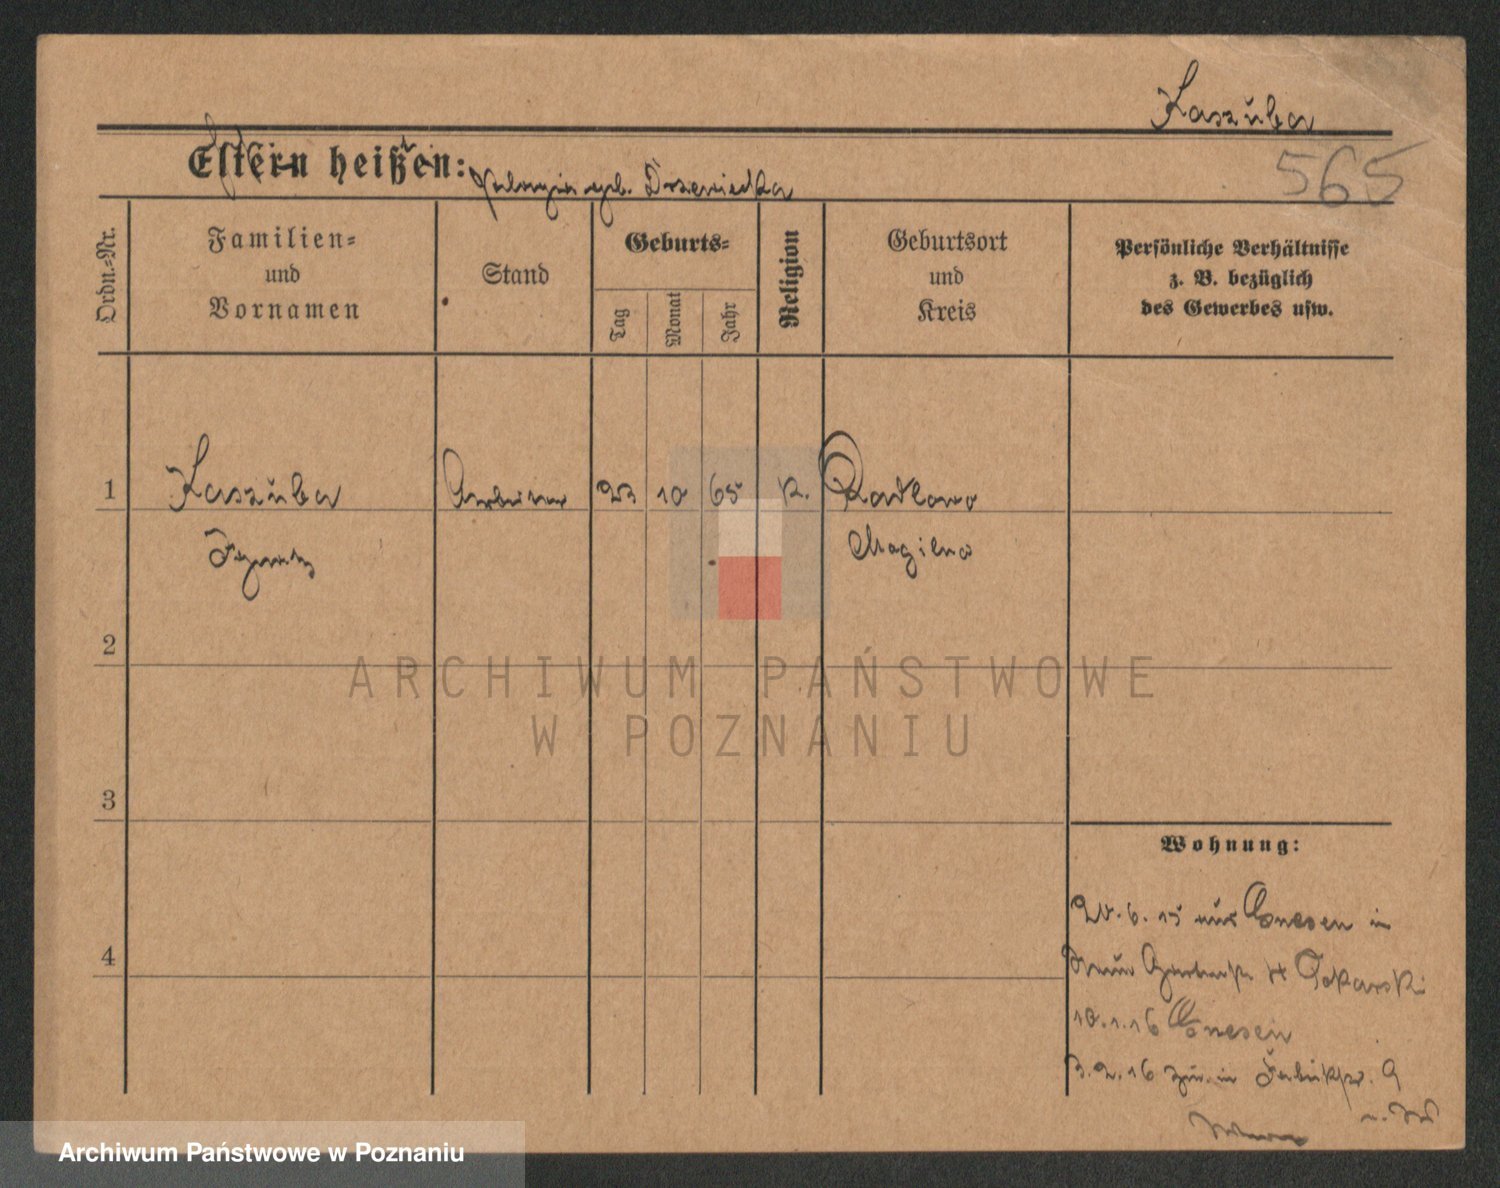 Kaszuba
565
Eltern heißen:
geb. Drzewiecka
Ordn.-Nr.
Familien-
und
Vornamen
Stand
Geburts-
Tag
Monat
Jahr
Religion
Geburtsort
und
Kreis
Persönliche Verhältnisse
z. B. bezüglich
des Gewerbes usw.
1
Kaszuba
Arbeiter
23
10
65
K.
Radlowo
Mogilno
2
3
4
Wohnung:
20.6.15 aus Gnesen in
Tokarski
10.1.16 Gnesen
3.2.16 zur. in
ARCHIWUM PAŃSTWOWE
W POZNANIU
Archiwum Państwowe w Poznaniu